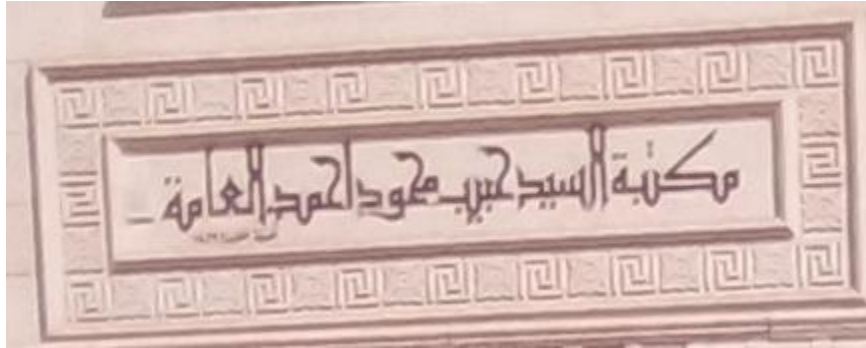 مكتبة السيد حبيب محمود احمد العامة